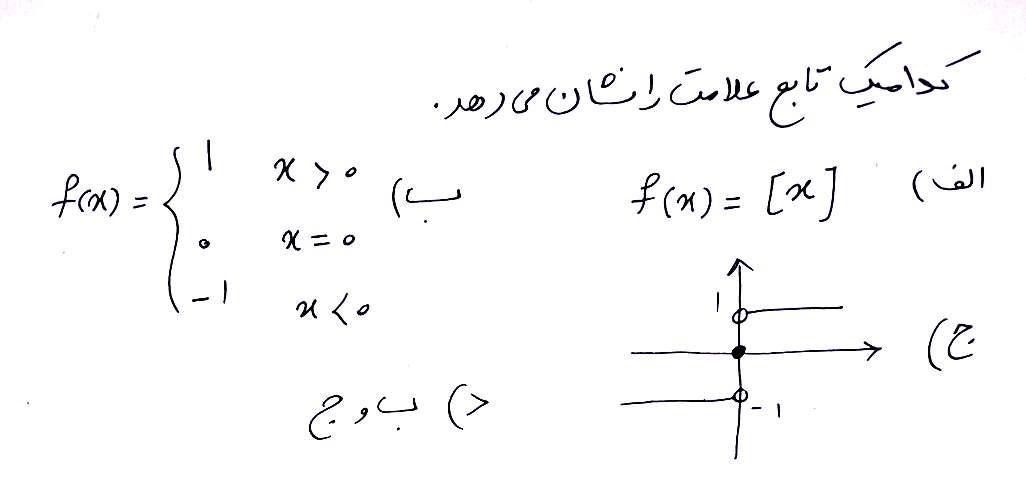 کدامیک تابع علامت را نشان می دهد.
الف) f(x) = [x]
ب) f(x) = { 1 x > 0
0 x = 0
-1 x < 0
ج)
1
-1
د) ب و ج